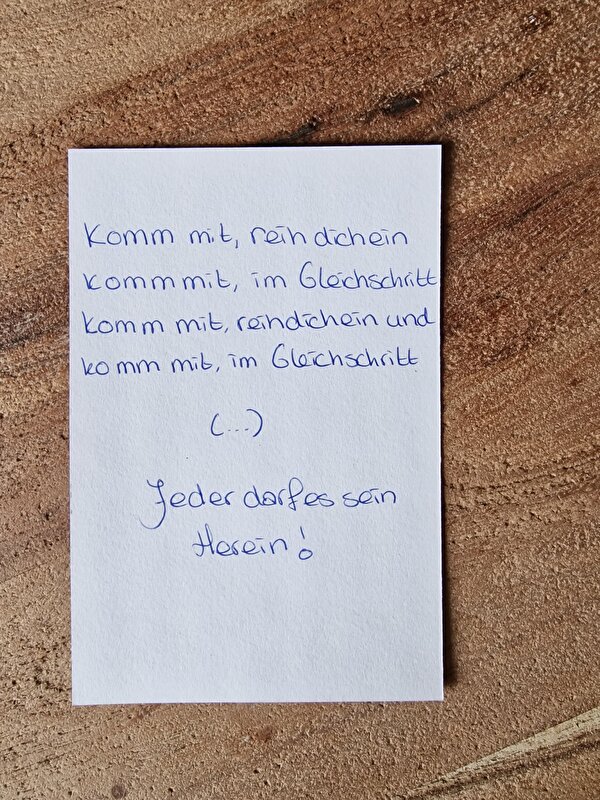 Komm mit, reih dich ein
komm mit, im Gleichschritt
komm mit, reih dich ein und
komm mit, im Gleichschritt
(...)
Jeder darf es sein
Herein!